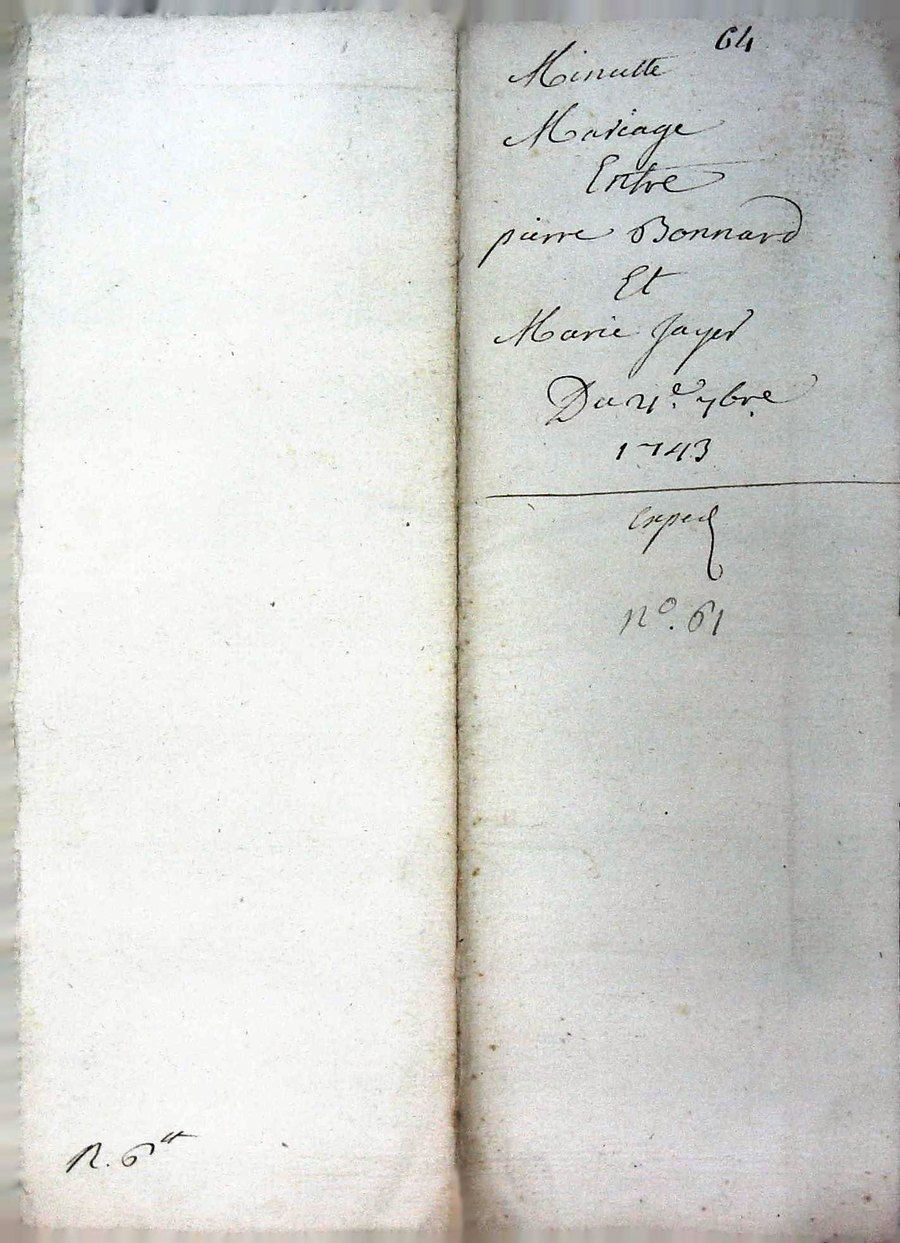 64
Minutte
Mariage
Entre
pierre Bonnard
Et
Marie Jayer
Du 4e. 7bre.
1743
Exped
No. 61
R. 6tt